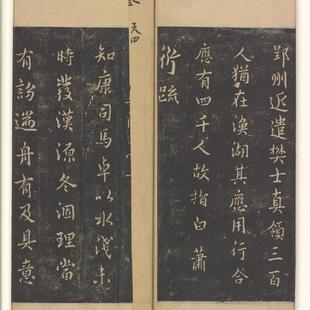 郢州近遣樊士真領三百
人猶在渙湖其應用行合
應有四千人故指白 蕭
衍疏
天四
知康司馬卓以水淺未
時發漢源冬涸理當
有訪遄舟有及具意